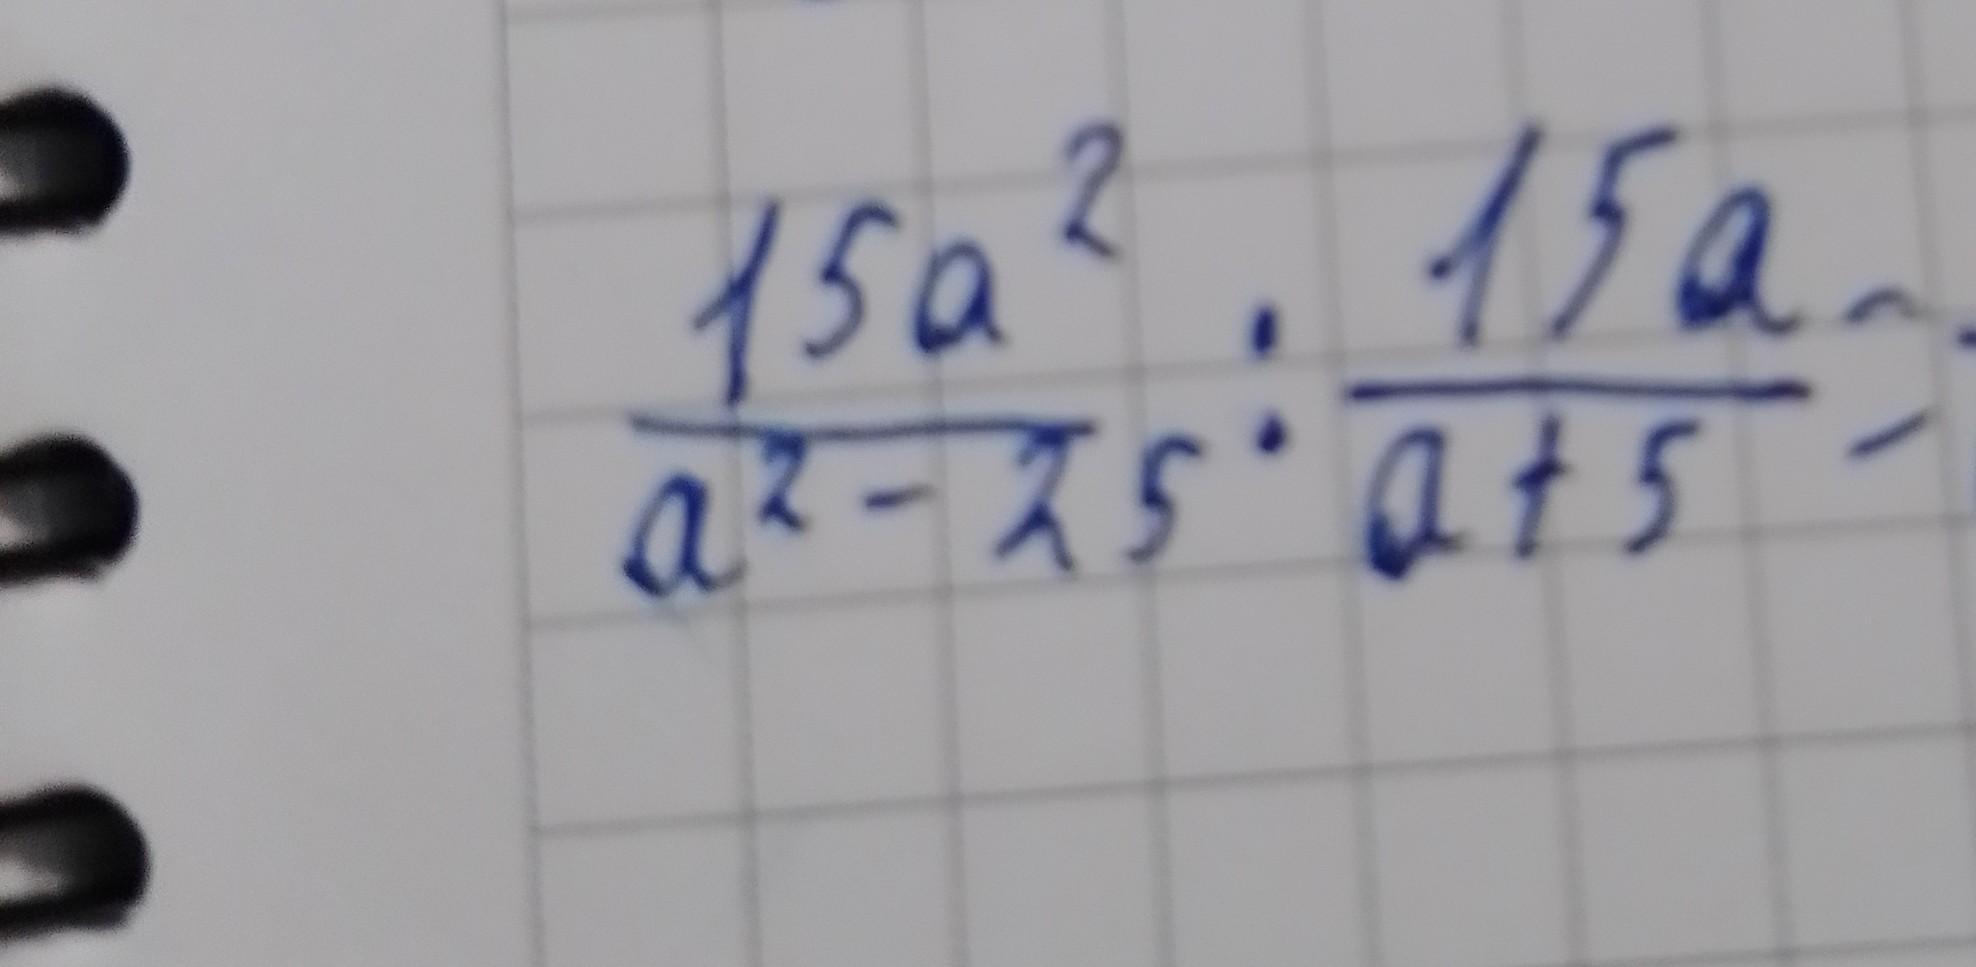 15a² / a² - 25 : 15a / a + 5 =